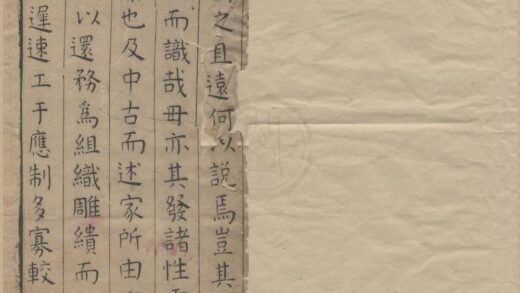 之且遠何以說焉豈其
而識哉毋亦其發諸性
也及中古而述家所由
以還務爲組織雕繢而
遲速工于應制多寡較